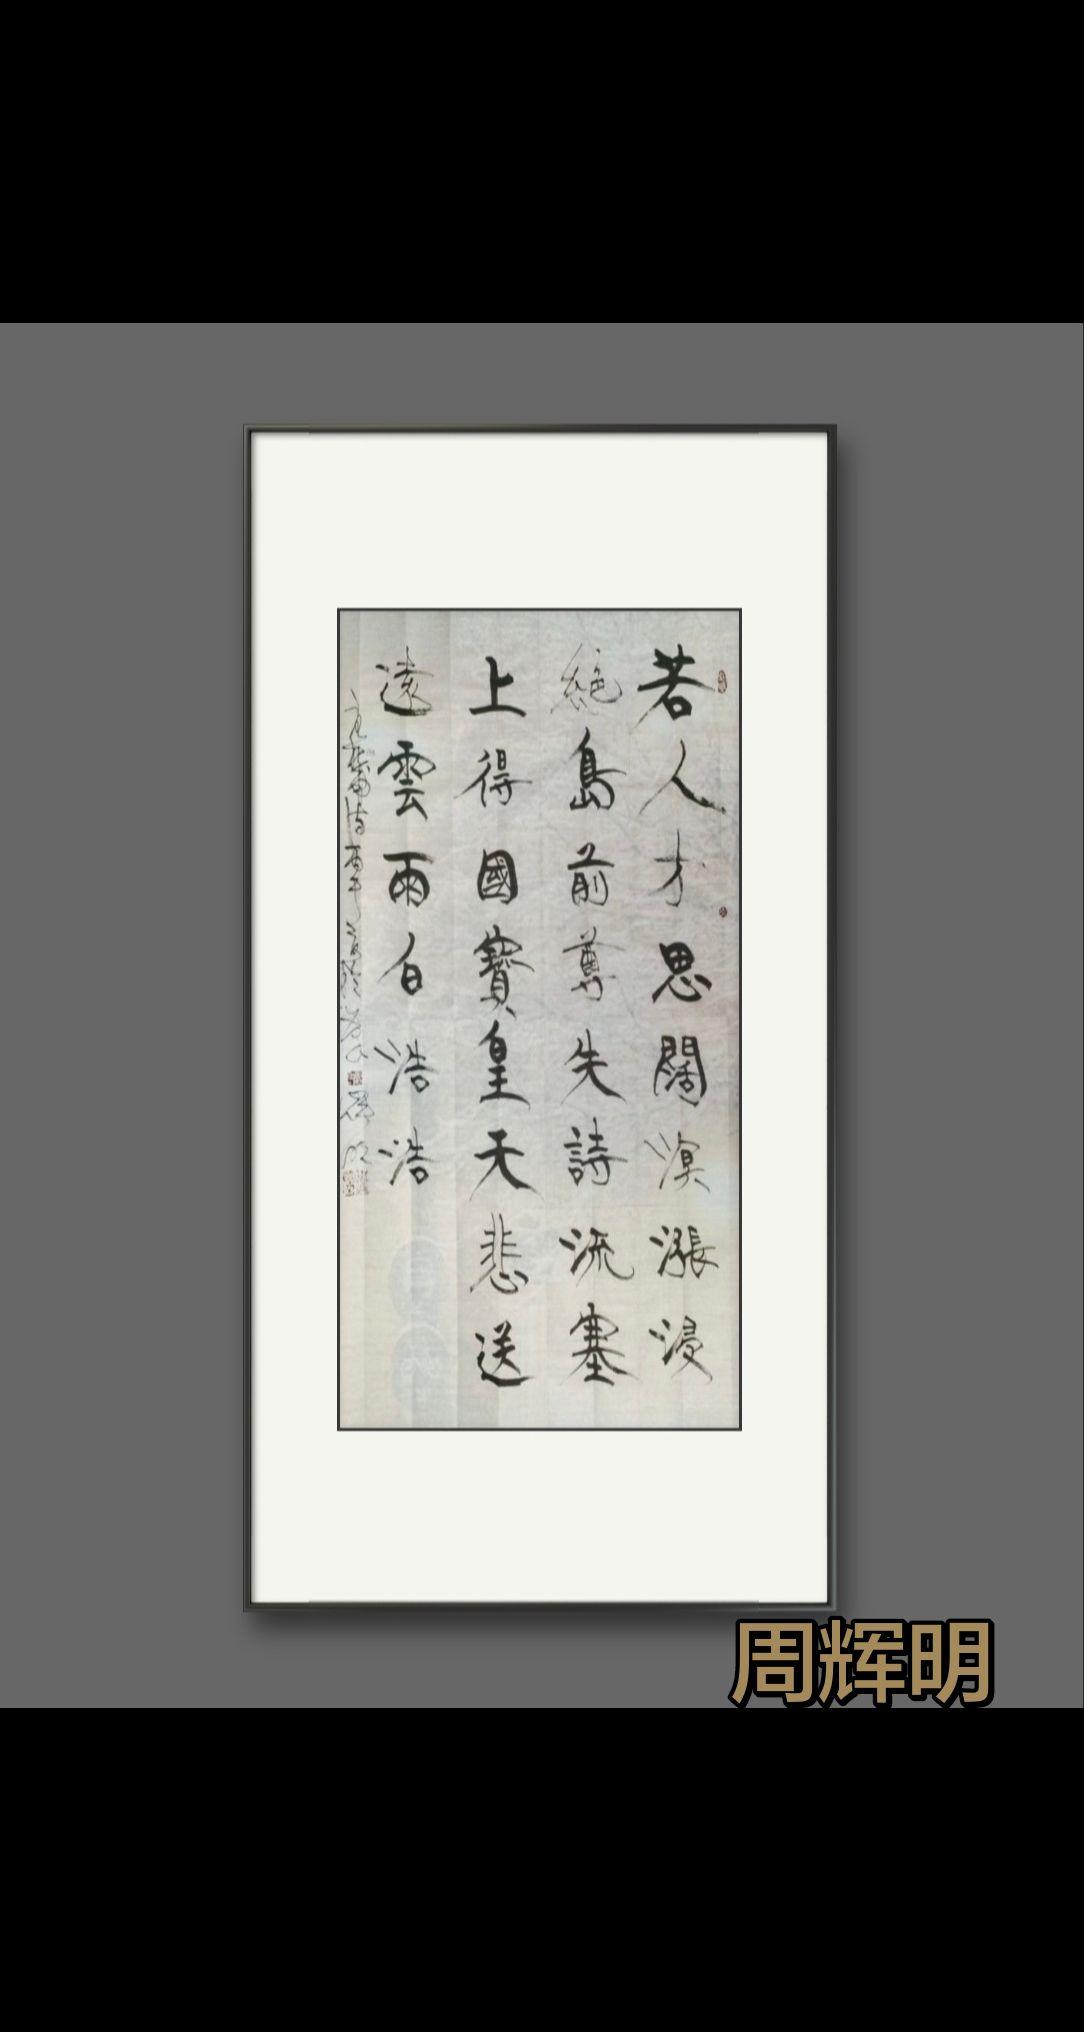 若人才思闊溟漲浸
絕島前尊失詩流塞
上得國寶皇天悲送
遠雲雨白浩浩
周辉明